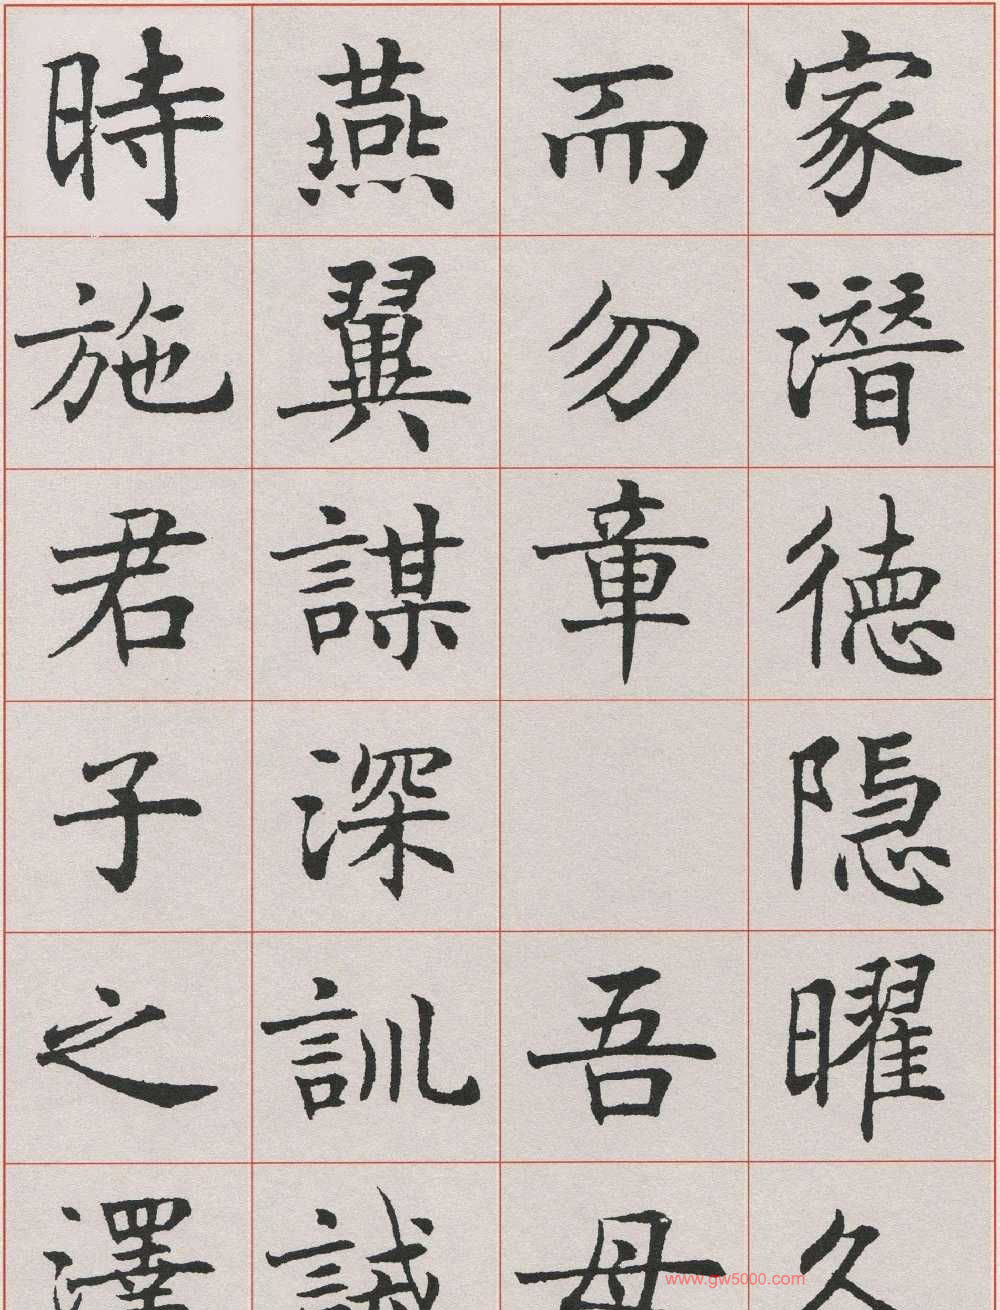 家潛德隱曜久
而勿章吾母
燕翼謀深訓誡
時施君子之澤
www.gw5000.com